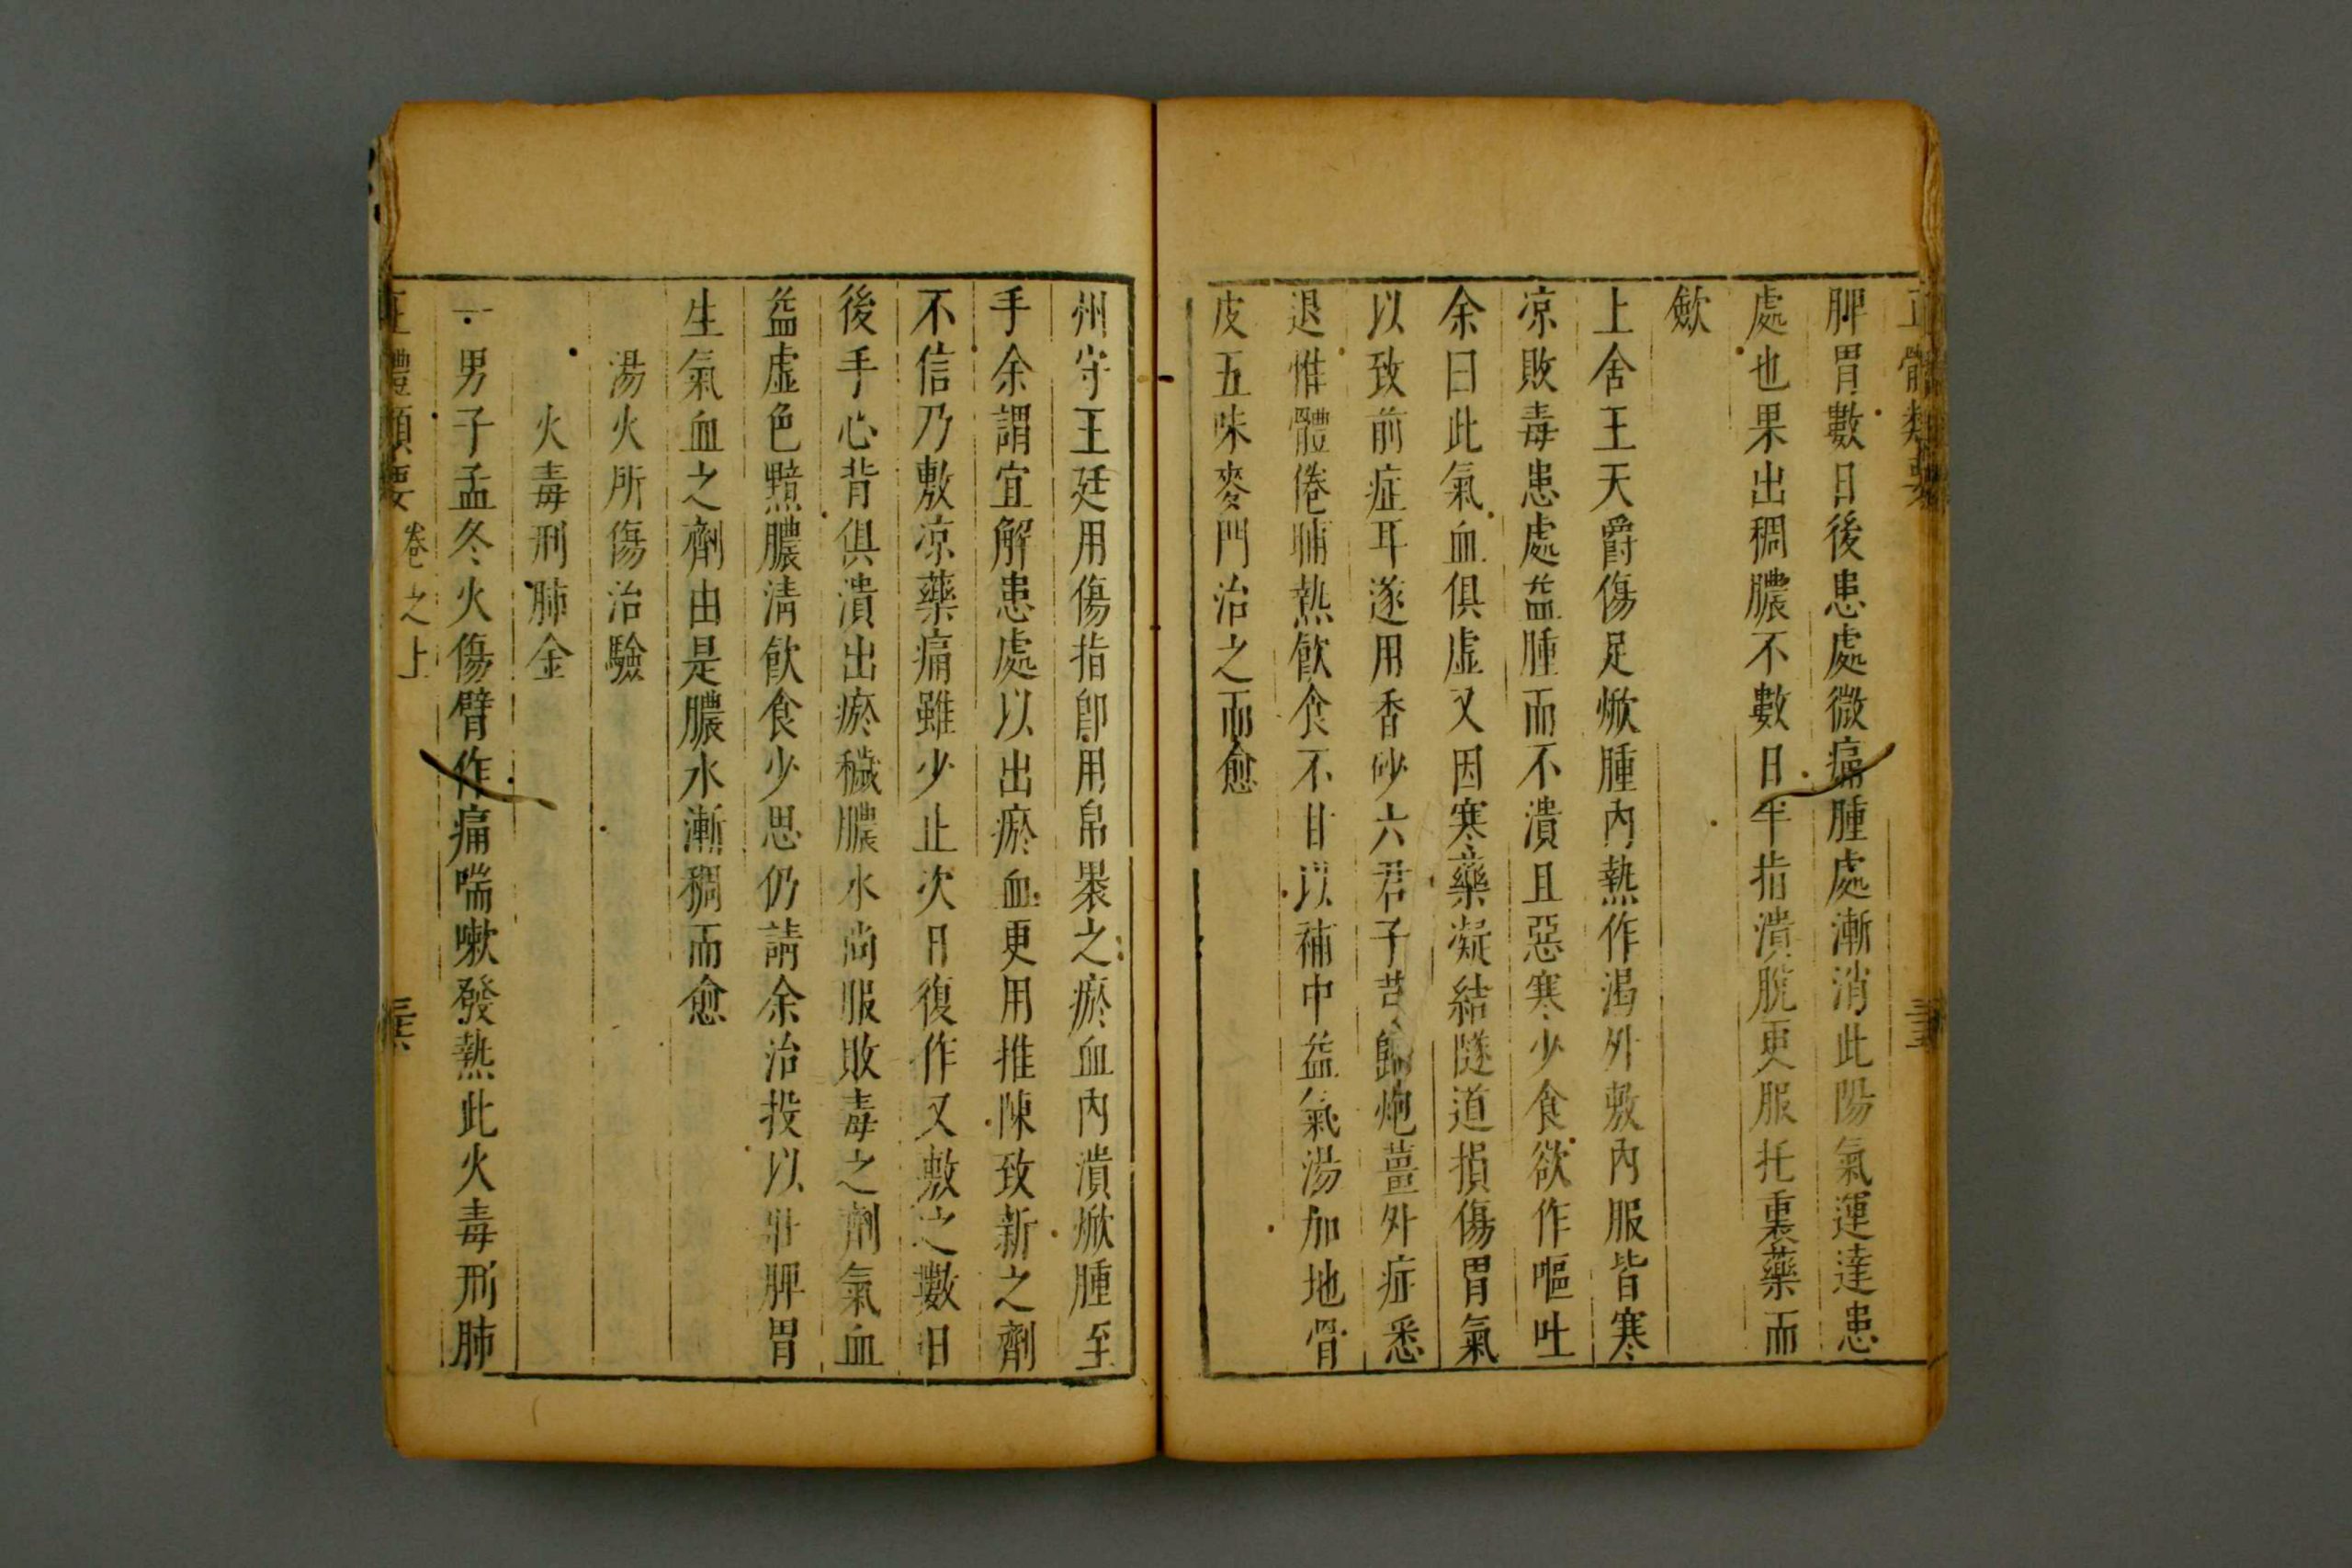 正體類要
脾胃數日後患處微痛腫處漸消此陽氣運達患
處也果出稠膿不數日半指潰脫更服托裏藥而
歛
上舍王天爵傷足焮腫內熱作渴外敷內服皆寒
凉敗毒患處益腫而不潰且惡寒少食欲作嘔吐
余曰此氣血俱虛又因寒藥凝結隧道損傷胃氣
以致前症耳遂用香砂六君子芎歸炮薑外症悉
退惟體倦晡熱飲食不甘以補中益氣湯加地骨
皮五味麥門治之而愈
州守王廷用傷指卽用帛裹之瘀血內潰焮腫至
手余謂宜解患處以出瘀血更用推陳致新之劑
不信乃敷凉藥痛雖少止次日復作又敷之數日
後手心背俱潰出瘀穢膿水尚服敗毒之劑氣血
益虛色黯膿清飲食少思仍請余治投以壯脾胃
生氣血之劑由是膿水漸稠而愈
湯火所傷治驗
火毒刑肺金
一男子孟冬火傷臂作痛喘嗽發熱此火毒刑肺
正體類要 卷之上